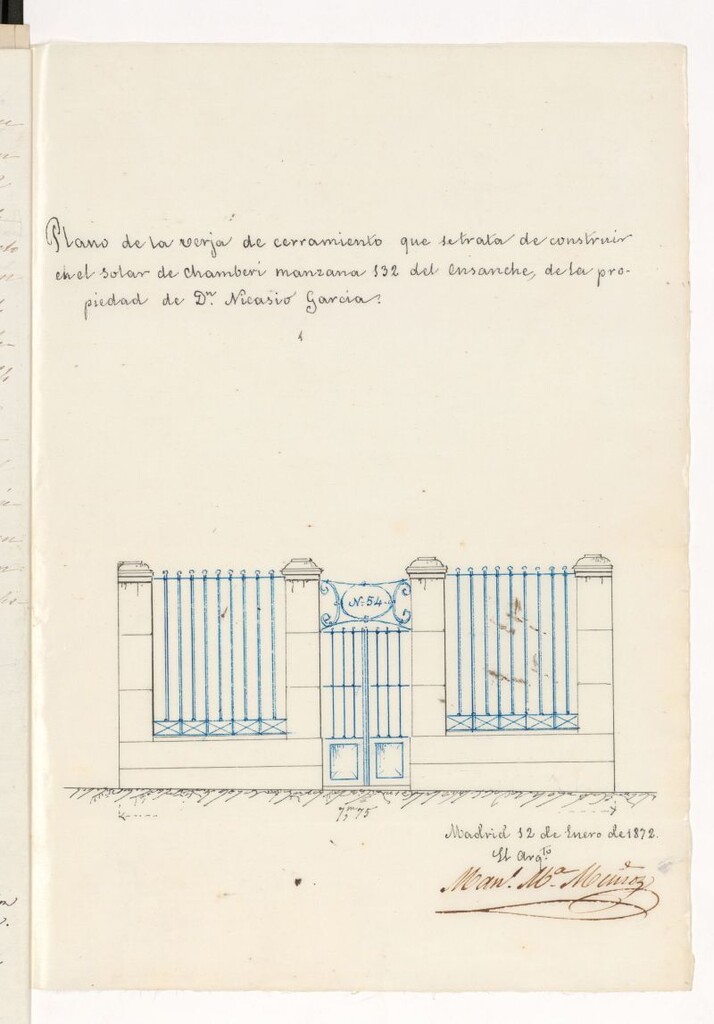 Plano de la verja de cerramiento que se trata de construir
en el solar de Chamberi manzana 132 del Ensanche, de la pro-
piedad de Dn. Nicasio Garcia.
N.º 54
7,m75
Madrid 12 de Enero de 1872.
El Arqto
Manl. Ma. Muñoz